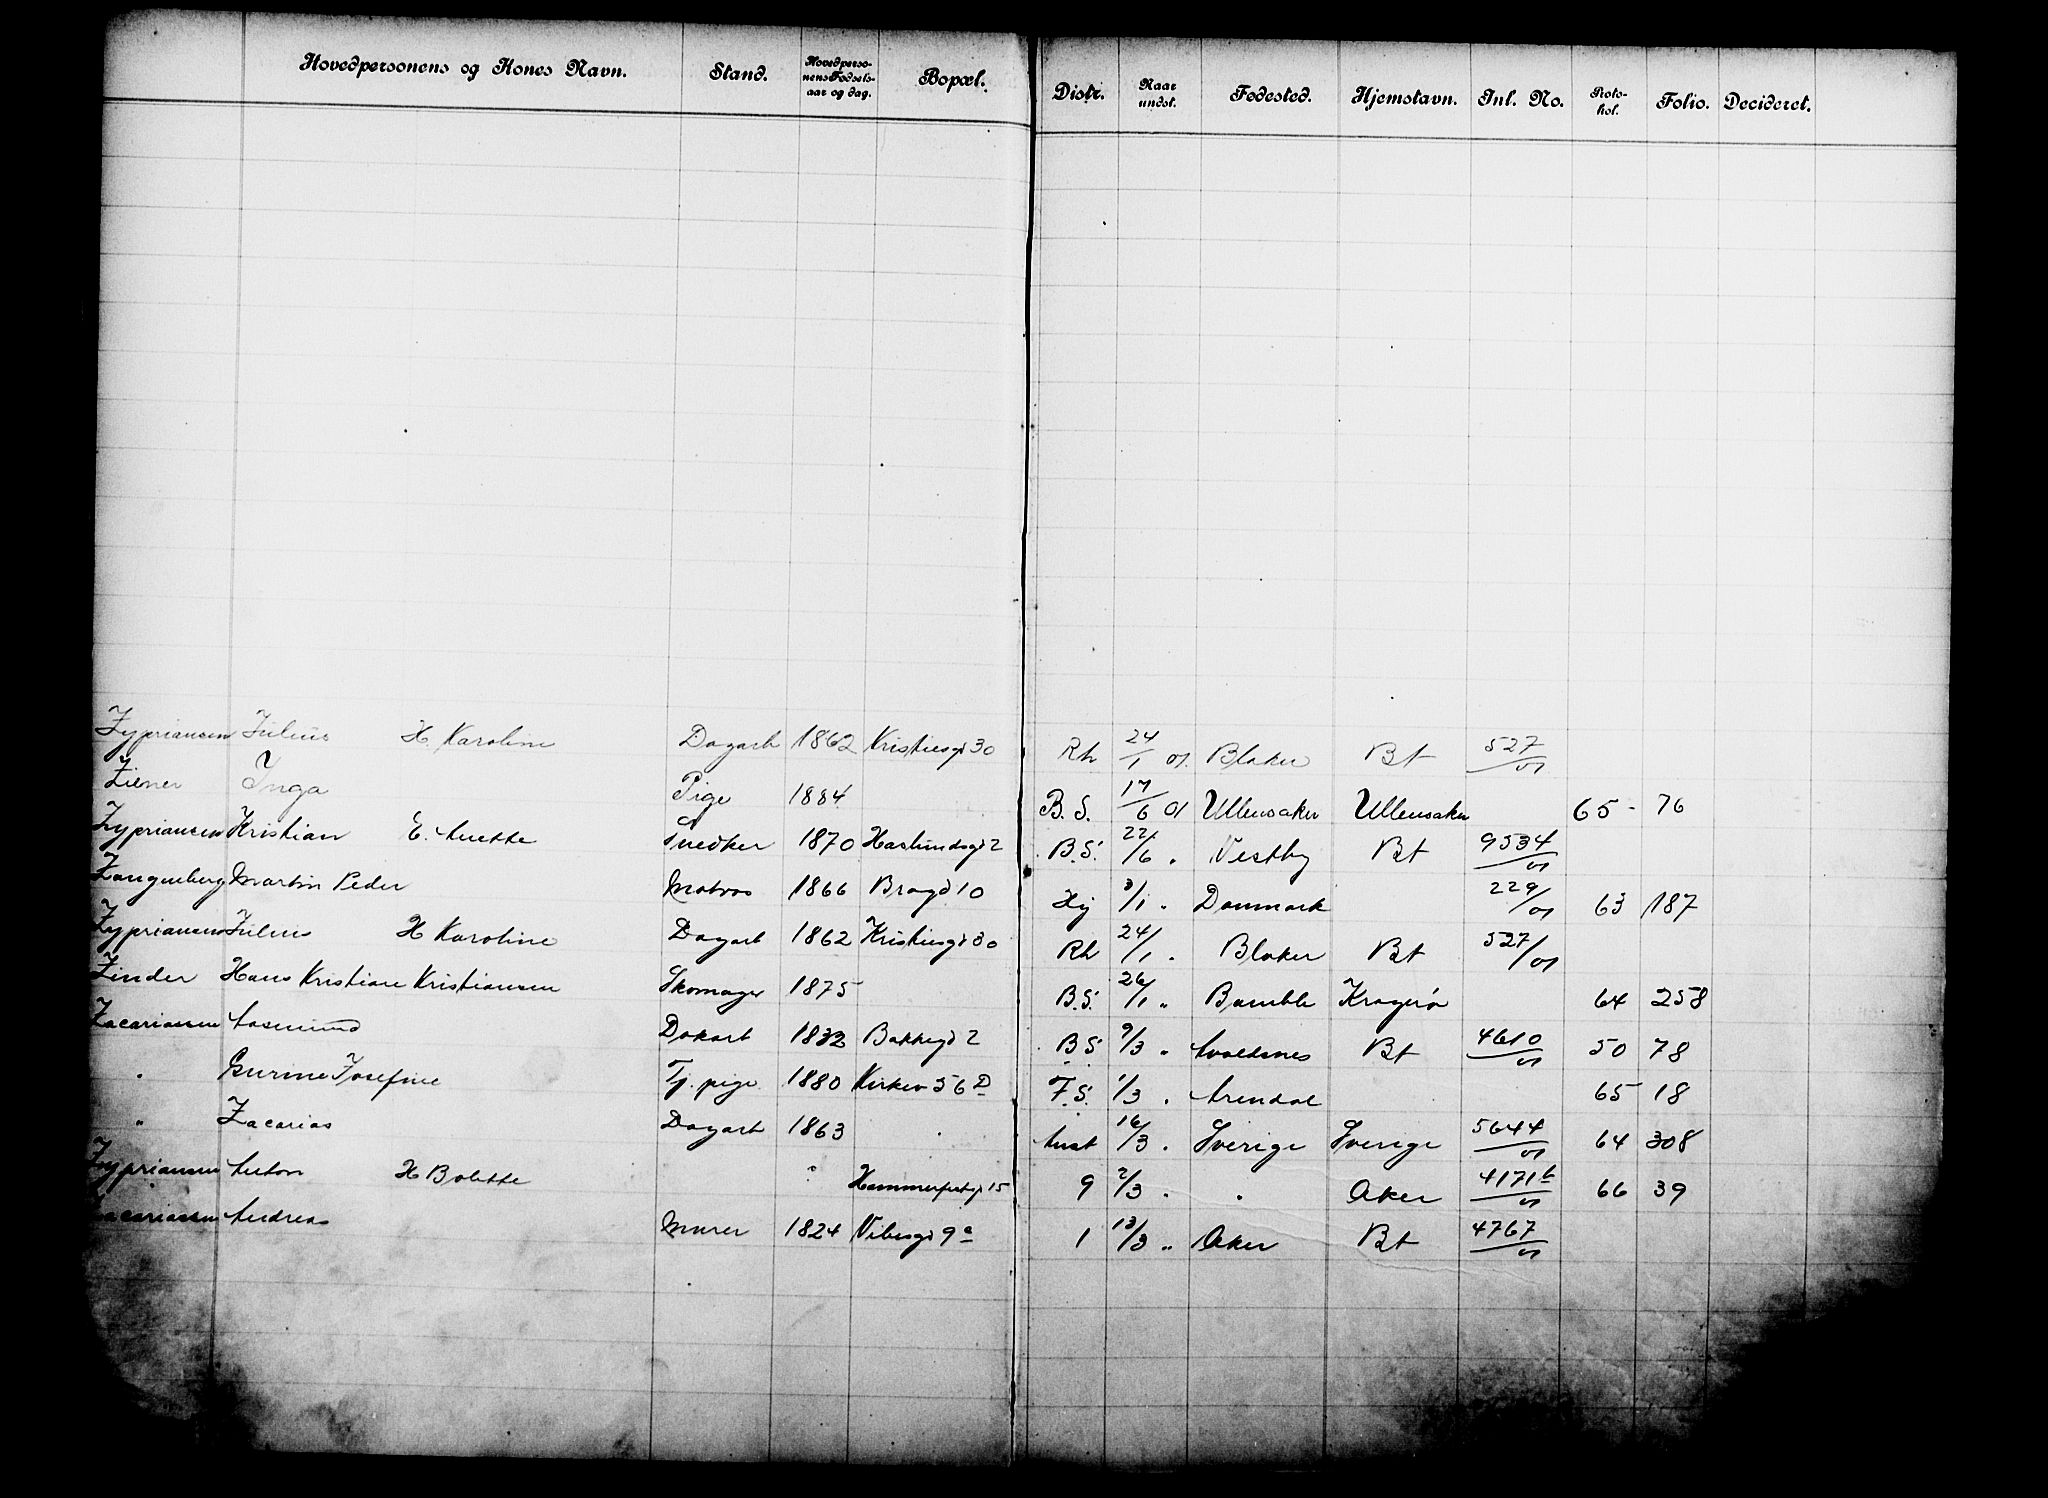 Hovedpersonens og Kones Navn. Stand. Hovedperso-nens Fødsels-aar og dag. Bopæl. Distr. Naar undst. Fødested. Hjemstavn. Inl. No. Proto-kol. Folio. Decideret.
Zypriansen Julius H. Karoline Dagarb 1862 Kristiesgd 30 Rh 24/1 01. Blaker Bt 527/01
Ziener Inga Pige 1884 B.S. 17/6 01 Ullensaker Ullensaker 65 - 76
Zypriansen Kristian E. Anette Snedker 1870 Haslundsgd 2 B.S. 22/6 " Vestby Bt 9534/01
Zangenberg Martin Peder Matros 1866 Bragd 10 Hj 3/1 " Danmark 229/01 63 187
Zypriansen Julius H Karoline Dagarb 1862 Kristiesgd 30 Rh 24/1 " Blaker Bt 527/01
Zinder Hans Kristian Kristiansen Skomager 1875 B.S. 26/1 " Bamble Kragerø 64 258
Zacariassen Aasmund Dokarb 1832 Bakkegd 2 B.S 9/3 " Avaldsnes Bt 4610/01 50 78
" Gurine Josefine Tj. pige 1880 Kirkev 56 D F.S. 1/3 " Arendal 65 18
" Zacarias Dagarb 1863 " Anst 16/3 " Sverige Sverige 5644/01 64 308
Zypriansen Anton H Bolette " Hammerfestgd 15 9 2/3 " " Aker 4171b/01 66 39
Zacariassen Andreas Murer 1824 Vibesgd 9a 1 13/3 " Aker Bt 4767/01